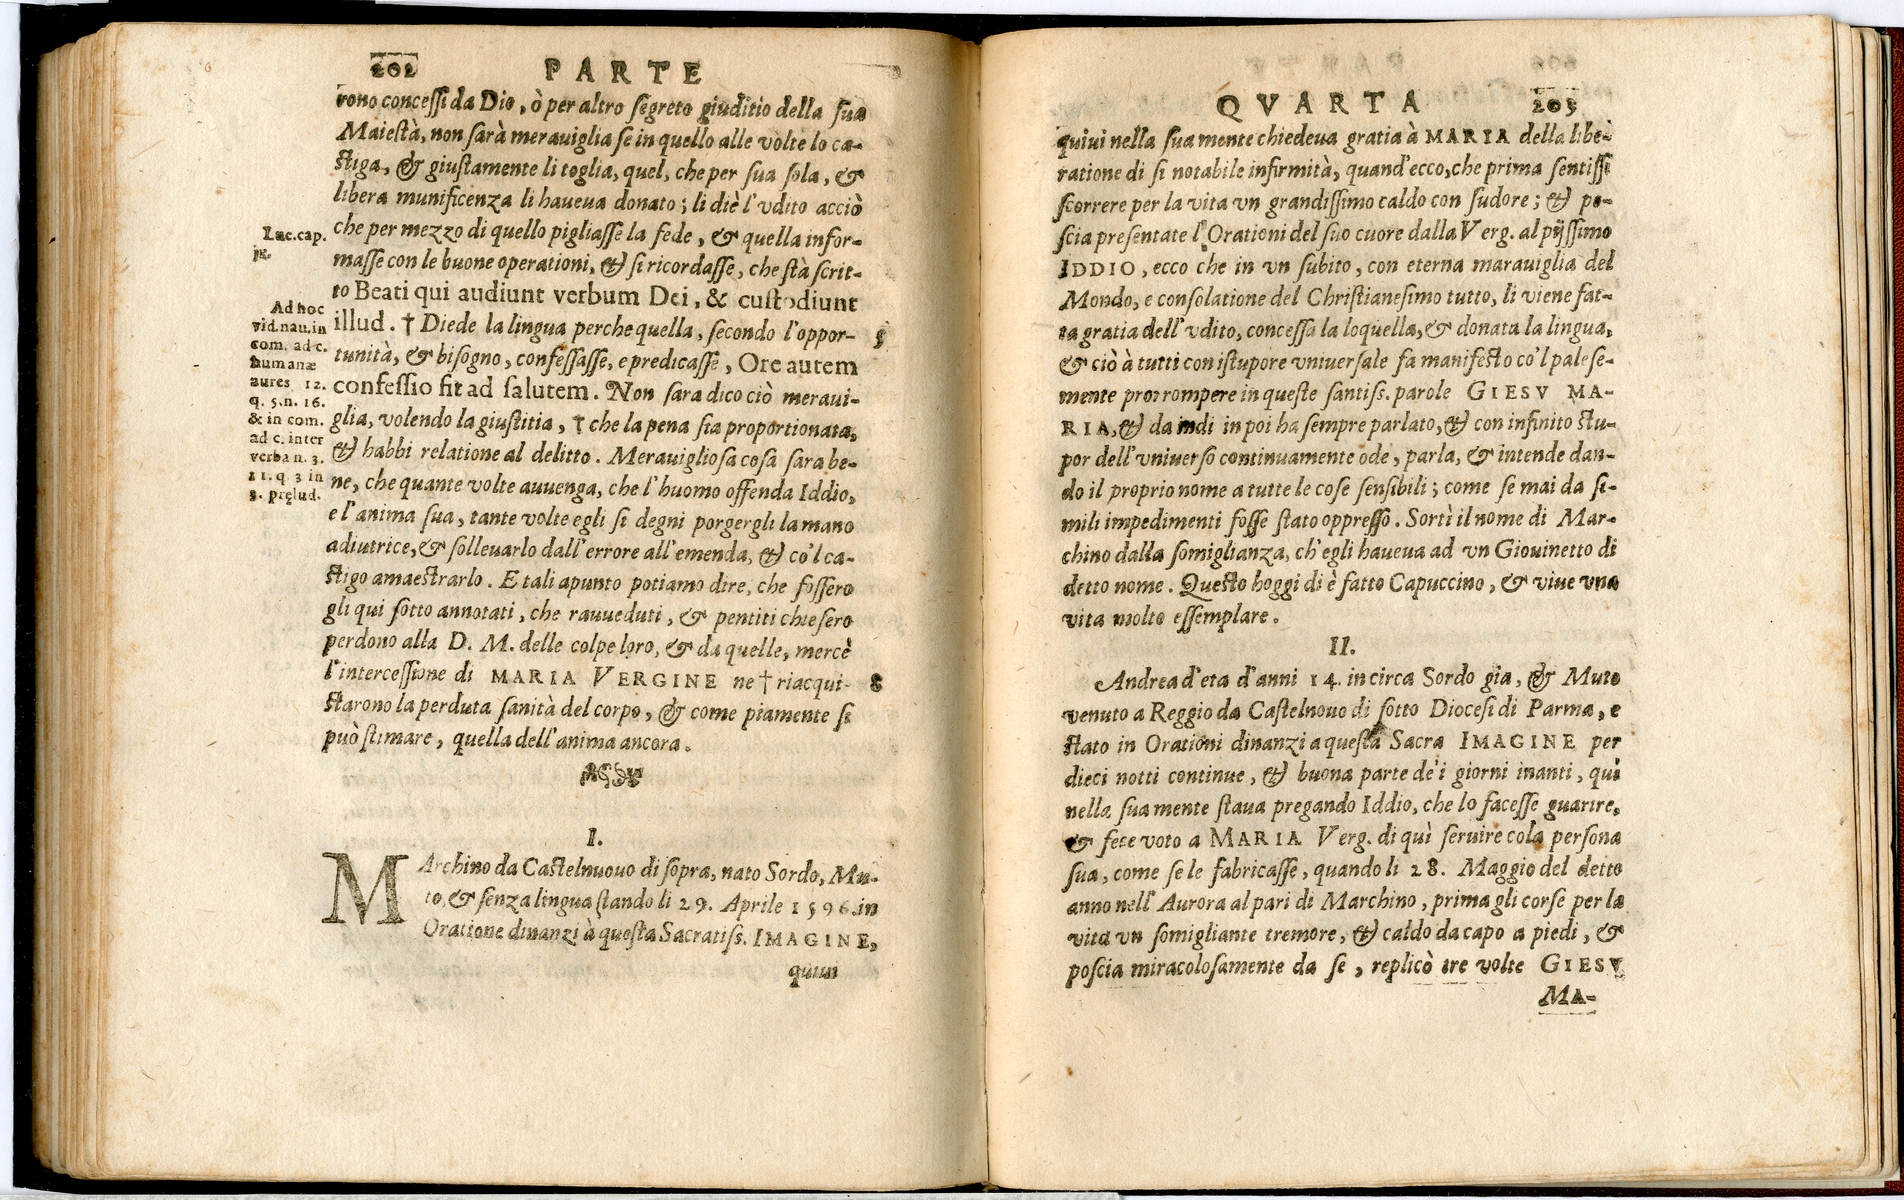 202
PARTE
rono concessi da Dio, ò per altro segreto giuditio della sua
Maiestà, non sarà merauiglia se in quello alle volte lo ca-
stiga, & giustamente li toglia, quel, che per sua sola, &
libera munificenza li haueua donato; li diè l'vdito acciò
che per mezzo di quello pigliasse la fede, & quella infor-
masse con le buone operationi, & si ricordasse, che stà scrit-
to Beati qui audiunt verbum Dei, & custodiunt
illud. † Diede la lingua perche quella, secondo l'oppor-
tunità, & bisogno, confessasse, e predicasse, Ore autem
confessio fit ad salutem. Non sara dico ciò meraui-
glia, volendo la giustitia, † che la pena sia proportionata,
& habbi relatione al delitto. Merauigliosa cosa sara be-
ne, che quante volte auuenga, che l'huomo offenda Iddio,
e l'anima sua, tante volte egli si degni porgergli la mano
adiutrice, & solleuarlo dall'errore all'emenda, & co'l ca-
stigo amaestrarlo. E tali apunto potiamo dire, che fossero
gli qui sotto annotati, che rauueduti, & pentiti chiesero
perdono alla D. M. delle colpe loro, & da quelle, mercè
l'intercessione di MARIA VERGINE ne † riacqui-
starono la perduta sanità del corpo, & come piamente si
può stimare, quella dell'anima ancora.
Luc. cap.
Ad hoc
vid. nau. in
com. ad c.
humanæ
aures 12.
q. 5. n. 16.
& in com.
ad c. inter
verba n. 3.
11. q 3 in
3. pręlud.
5
8
I.
MArchino da Castelnuouo di sopra, nato Sordo, Mu-
to, & senza lingua stando li 29. Aprile 1596. in
Oratione dinanzi à questa Sacratiss. IMAGINE,
quiui
QVARTA
203
quiui nella sua mente chiedeua gratia à MARIA della libe-
ratione di si notabile infirmità, quand'ecco, che prima sentissi
scorrere per la vita vn grandissimo caldo con sudore; & po-
scia presentate l'Orationi del suo cuore dalla Verg. al pijssimo
IDDIO, ecco che in vn subito, con eterna marauiglia del
Mondo, e consolatione del Christianesimo tutto, li viene fat-
ta gratia dell'vdito, concessa la loquella, & donata la lingua,
& ciò à tutti con istupore vniuersale fa manifesto co'l palese-
mente prorrompere in queste santiss. parole GIESV MA-
RIA, & da indi in poi ha sempre parlato, & con infinito stu-
por dell'vniuerso continuamente ode, parla, & intende dan-
do il proprio nome a tutte le cose sensibili; come se mai da si-
mili impedimenti fosse stato oppresso. Sortì il nome di Mar-
chino dalla somiglianza, ch'egli haueua ad vn Giouinetto di
detto nome. Questo hoggi di è fatto Capuccino, & viue vna
vita molto essemplare.
II.
Andrea d'eta d'anni 14. in circa Sordo gia, & Muto
venuto a Reggio da Castelnouo di sotto Diocesi di Parma, e
stato in Orationi dinanzi a questa Sacra IMAGINE per
dieci notti continue, & buona parte de'i giorni inanti, quì
nella sua mente staua pregando Iddio, che lo facesse guarire,
& fece voto a MARIA Verg. di quì seruire cola persona
sua, come se le fabricasse, quando li 28. Maggio del detto
anno nell'Aurora al pari di Marchino, prima gli corse per la
vita vn somigliante tremore, & caldo da capo a piedi, &
poscia miracolosamente da se, replicò tre volte GIESV
MA-